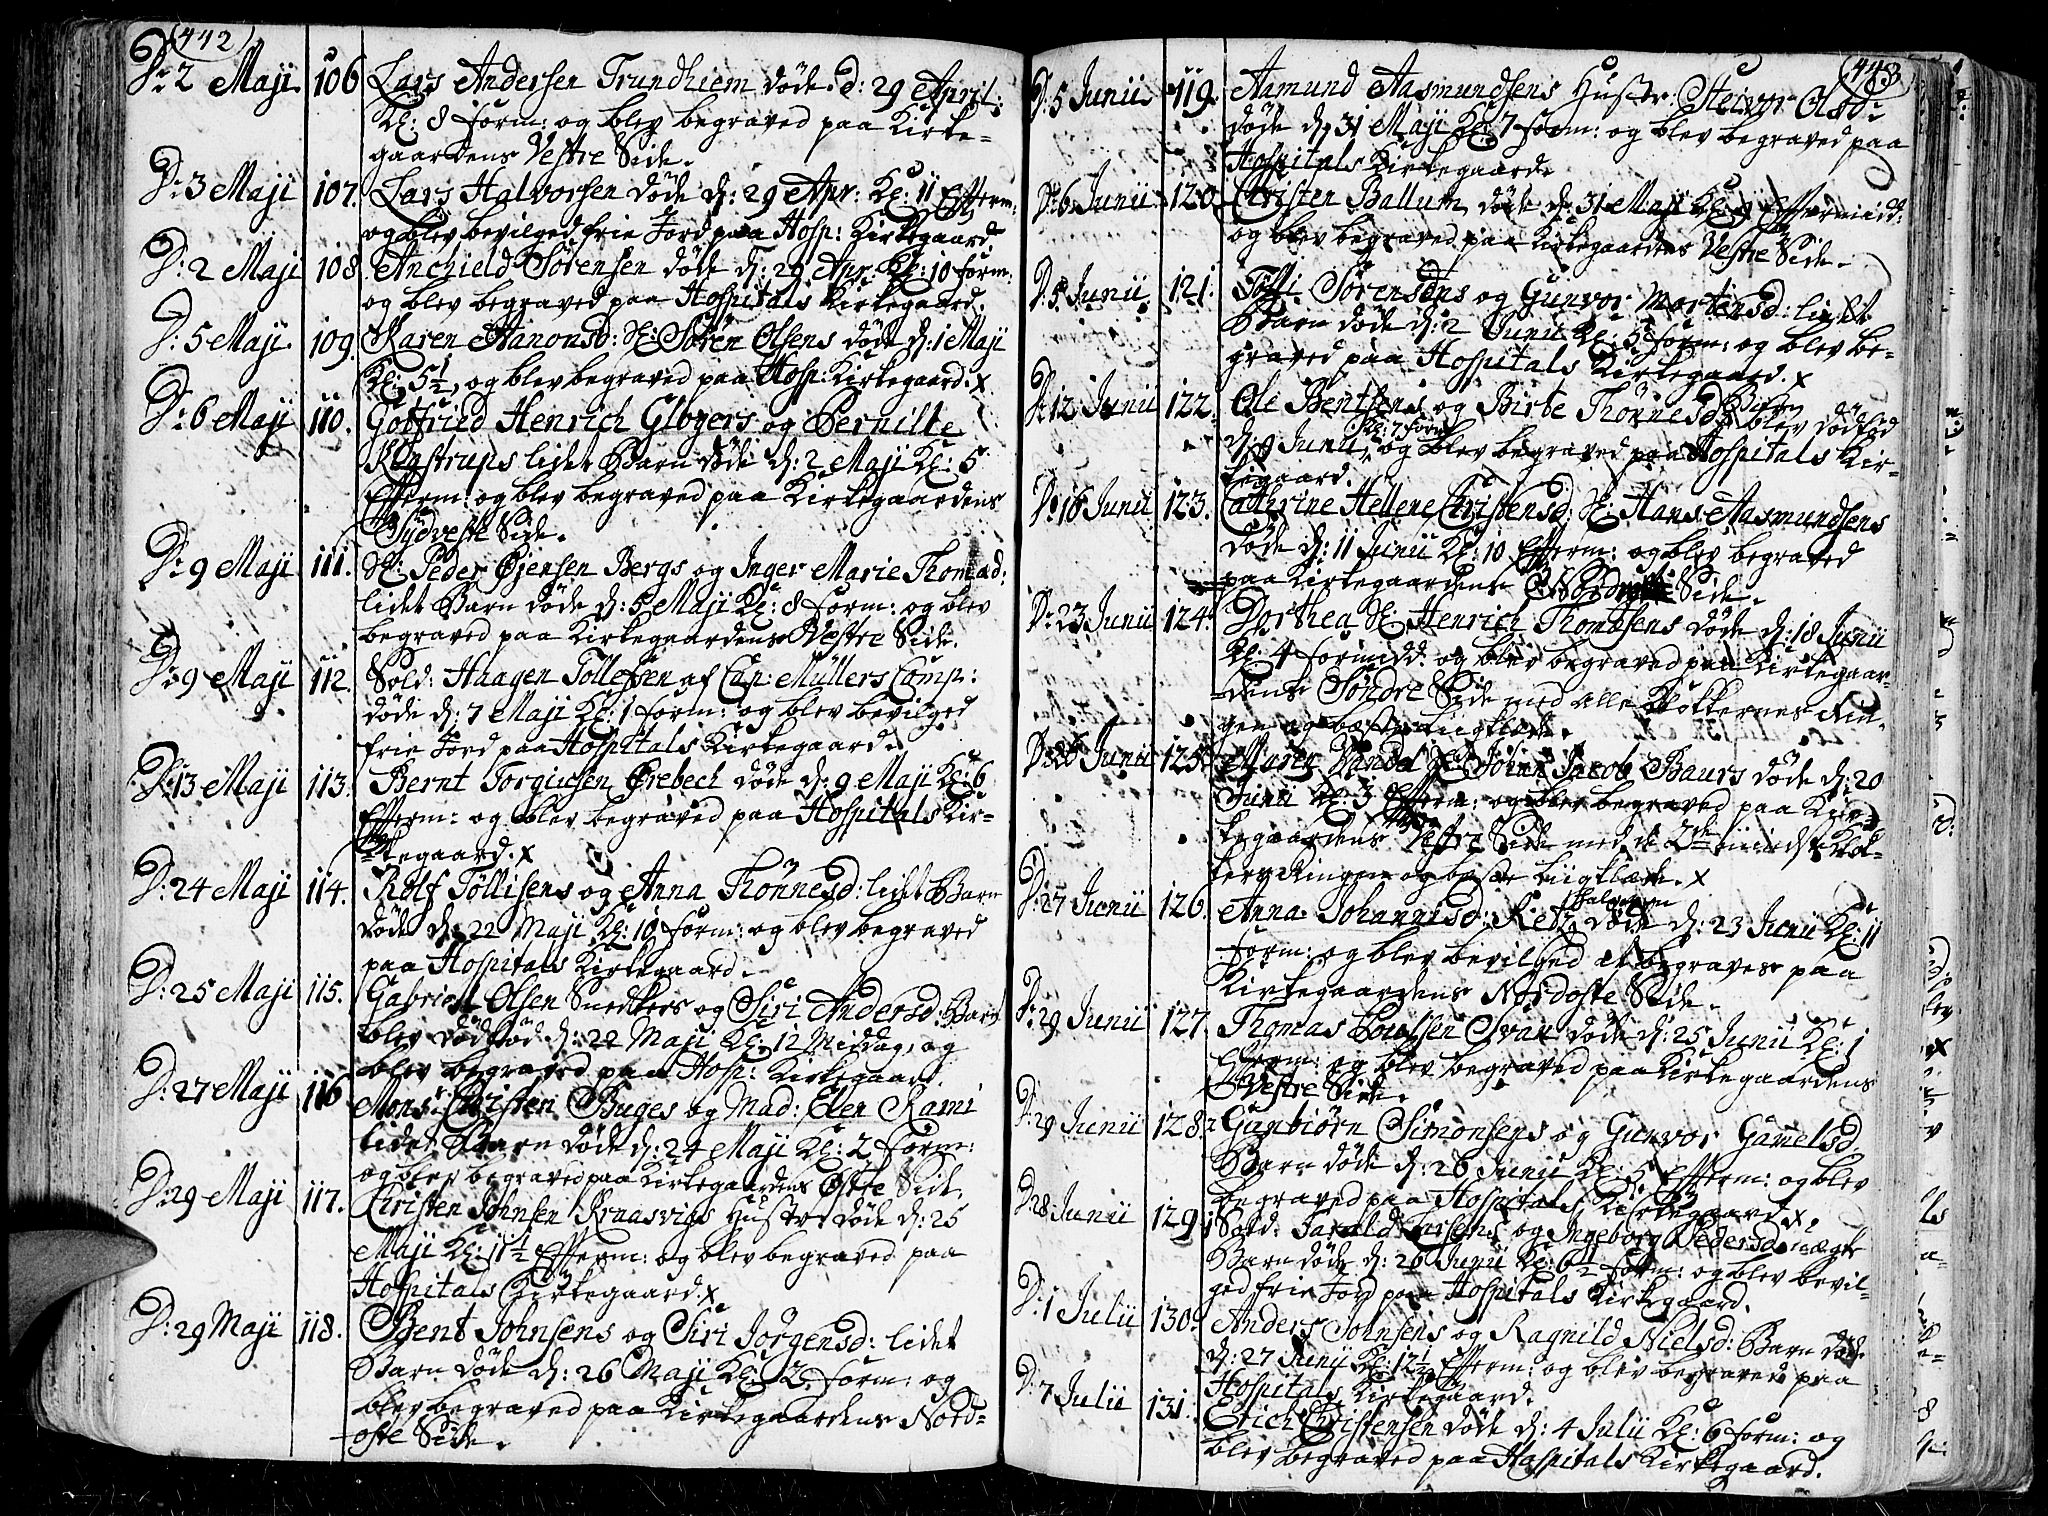 442
D: 2 Maji 106 Lars Andersen Trundhiem døde d: 29 April:
Kl: 8 form: og blev begraved paa Kirke-
gaardens Vestre Side.
D: 3 Maji 107. Lars Halvorsen døde d: 29 Apr: Kl: 11 Efterm:
og blev bevilged frie Jord paa Hosp: Kirkegaard.
D: 2 Maji 108 Anchield Sörensen døde d: 29 Apr. Kl: 10 form:
og blev begraved paa Hospitals Kirkegaard.
D: 5 Maji 109. Karen Aanonsd: Sören Olsens døde d: 1 Maji
Kl: 5½, og blev begraved paa Hosp: Kirkegaard. x
D: 6 Maji 110. Gotfried Henrich Glogers og Pernille
Klastrups lidet Barn døde d: 2 Maji Kl: 5
Efterm: og blev begraved paa Kirkegaardens
Sydveste Side.
D: 9 Maji 111. Peder Øjensen Bergs og Inger Marie Thomad:
lidet Barn døde d: 5 Maji Kl: 8 form: og blev
begraved paa Kirkegaardens Vestre Side.
D: 9 Maji 112. Sold: Haagen Tollefsen af Cap: Müllers Comp:
døde d: 7 Maji Kl: 1 form: og blev bevilged
frie Jord paa Hospitals Kirkegaard.
D: 13 Maji 113. Bernt Torgiusen Ørebech døde d: 9 Maji Kl: 6
Efterm: og blev begraved paa Hospitals Kir-
kegaard. x
D: 24 Maji 114. Rolf Töllisens og Anna Thönnesd: lidet Barn
døde d: 22 Maji Kl: 10 form: og blev begraved
paa Hospitals Kirkegaard.
D: 25 Maji 115. Gabriel Olsen Snedkers og Siri Andersd: Barn
blev dødfød d: 22 Maji Kl: 12 Middag, og
blev begraved paa Hosp: Kirkegaard.
D: 27 Maji 116 Mons: Christen Buges og Mad: Elen Rami
lidet Barn døde d: 24 Maji Kl: 2 form:
og blev begraved paa Kirkegaardens Østre Side.
D: 29 Maji 117. Christen Johnsen Knasvigs Hustr: døde d: 25
Maji Kl: 11½ Efterm: og blev begraved paa
Hospitals Kirkegaard. x
D: 29 Maji 118. Bent Johnsens og Siri Jörgensd: lidet
Barn døde d: 26 Maji Kl: 12 form: og
blev begraved paa Kirkegaardens Nord-
oste Side.
443
D: 5 Junii 119. Aamund Aasmundsens Hustr: Steivor Olsd:
døde d: 31 Maji Kl: 7 form: og blev begraved paa
Hospitals Kirkegaard.
D: 6 Junii 120 Christen Ballum døde d: 31 Maji Kl: 9 Eftermidd:
og blev begraved paa Kirkegaardens Vestre Side.
D: 5 Junii 121. Tölli Sörensens og Gunvor Mortensd: lidet
Barn døde d: 2 Junii Kl: 5 form: og blev be-
graved paa Hospitals Kirkegaard. x
D: 12 Junii 122. Ole Bentsens og Birte Thönnesd: Barn blev dødfød
d: 9 Junii Kl: 7 form: og blev begraved paa Hospitals Kir-
kegaard.
D: 16 Junii 123. Cathrine Hellene Christensd: Hans Aasmundsens
døde d: 11 Junii Kl: 10 Efterm: og blev begraved
paa Kirkegaardens Side.
D: 23 Junii 124. Dorthea Henrich Thomæsens døde d: 18 Junii
Kl: 4 formidd: og blev begraved paa Kirkegaar-
dens Söndre Side med alle Klokkernes Rin-
gen og beste Liigklæde.
D: 26 Junii 125. Maren Vandel Johan Jacob Baurs døde d: 20
Junii Kl: 3 Efterm: og blev begraved paa Kir-
kegaardens Vestre Side med de 2de mindste Klok-
kers Ringen og beste Liigklæde. x
D: 27 Junii 126. Anna Johannisd: døde d: 23 Junii Kl: 11
form: og blev bevilged at begraves paa
Kirkegaardens Nordoste Side.
D: 29 Junii 127. Thomas Poulsen Svan døde d: 25 Junii Kl: 1
Efterm: og blev begraved paa Kirkegaardens
Vestre Side.
D: 29 Junii 128. Gunbiörn Simonsens og Gunvor Gamelsd
Barn døde d: 26 Junii Kl: 5 Efterm: og blev
begraved paa Hospitals Kirkegaard x.
D: 28 Junii 129. Sold: Larsens og Ingeborg Pedersd: uægte
Barn døde d: 26 Junii Kl: 6½ form: og blev bevil-
ged frie Jord paa Hospitals Kirkegaard.
D: 1 Julii 130. Anders Johnsens og Ragnild Nielsd: Barn døde
d: 27 Junii Kl: 12½ Efterm: og blev begraved paa
Hospitals Kirkegaard.
D: 7 Julii 131. Erich Christensen døde d: 4 Julii Kl: 6 form: og
blev begraved paa Hospitals Kirkegaard.